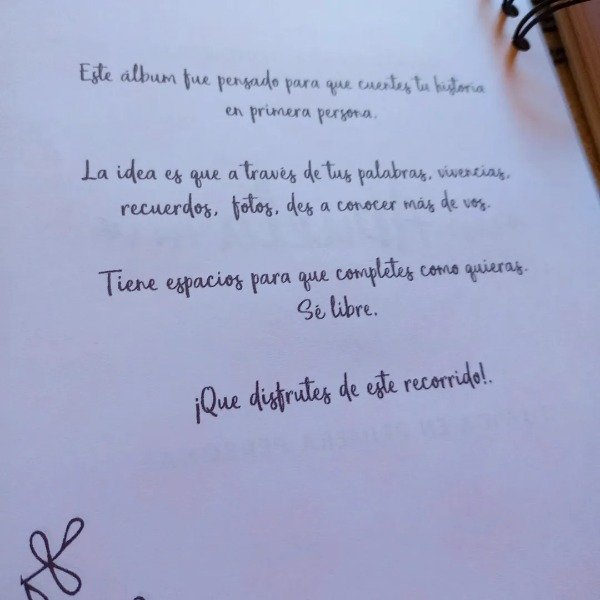 Este álbum fue pensado para que cuentes tu historia
en primera persona.
La idea es que a través de tus palabras, vivencias,
recuerdos, fotos, des a conocer más de vos.
Tiene espacios para que completes como quieras.
Sé libre.
¡Que disfrutes de este recorrido!.